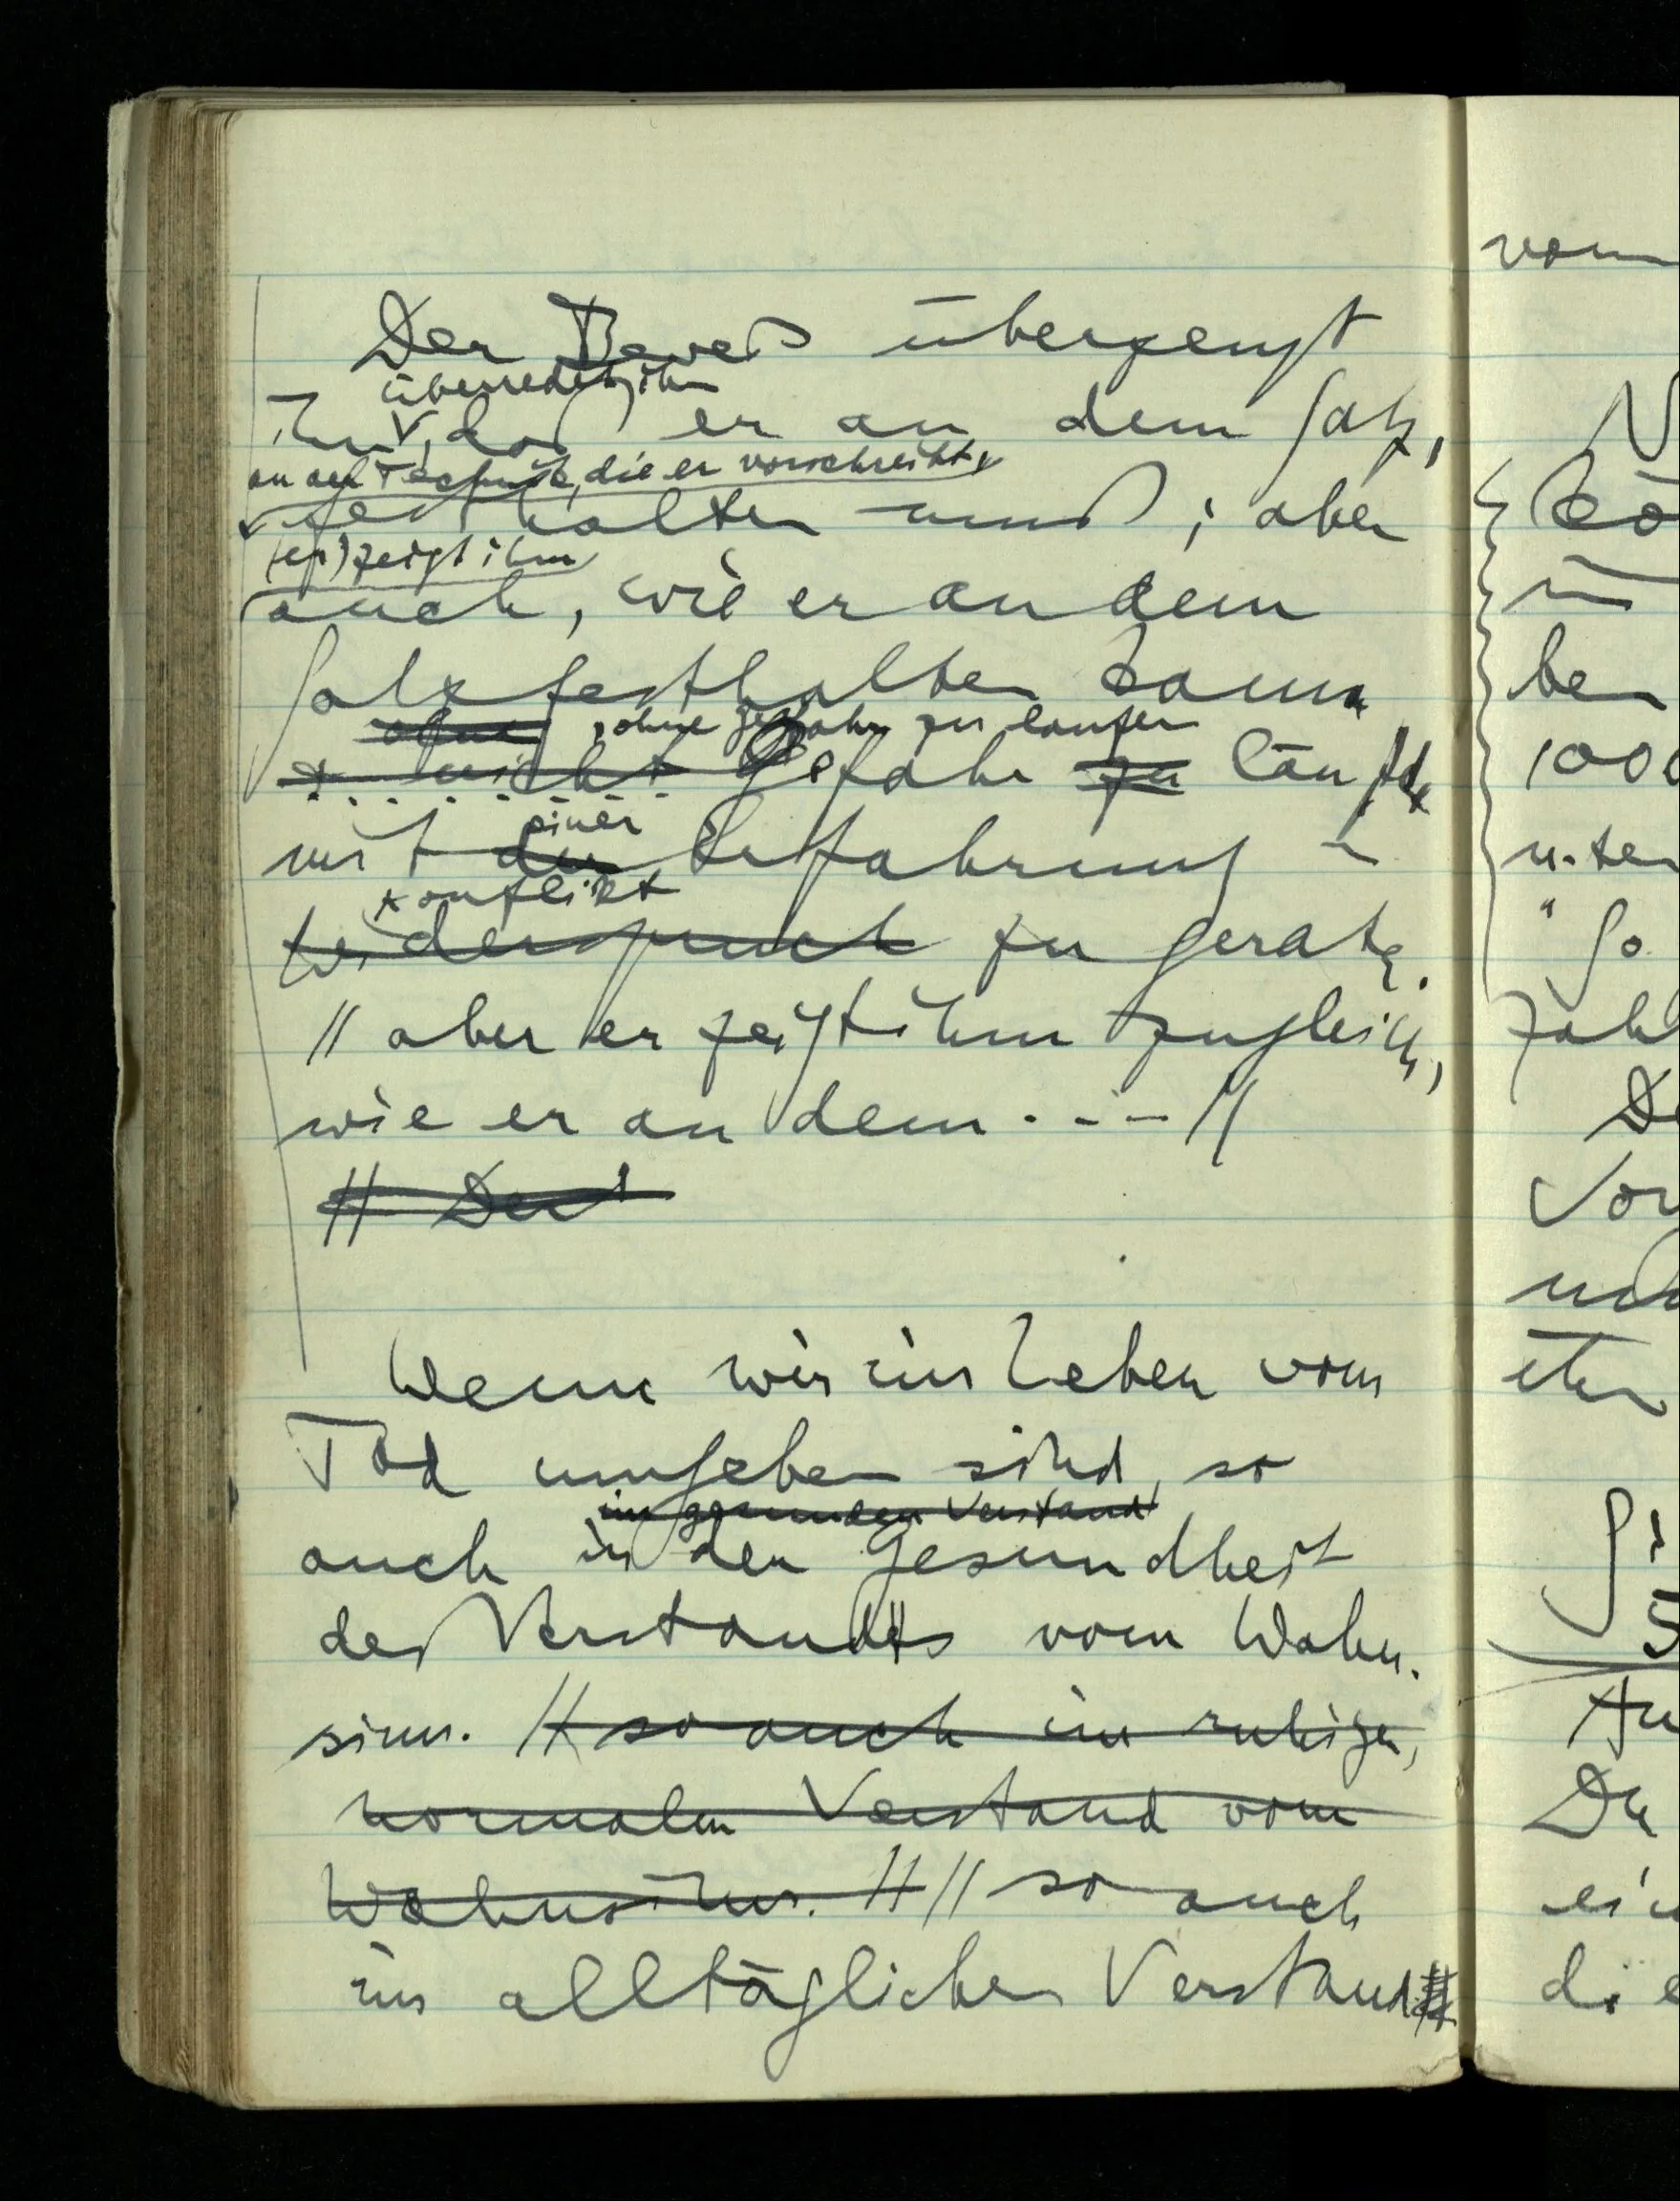 Der Beweis überzeugt
überredet ihn
ihn, daß er an dem Satz,
an der Technik, die er vorschreibt,
festhalten muß; aber
(er) zeigt ihm
auch, wie er an dem
Satz festhalten kann
ohne , ohne Gefahr zu laufen
& nicht Gefahr zu läuft
einer
mit der Erfahrung in
Konflikt
Widerspruch zu geraten.
// aber er zeigt ihm zugleich,
wie er an dem --- //
// Der
Wenn wir im Leben vom
Tod umgeben sind, so
im gesunden Verstand
auch in der Gesundheit
des Verstandes vom Wahn-
sinn. // so auch im ruhigen,
normalen Verstand vom
Wahnsinn. // // so auch
im alltäglichen Verstand //
vom
N
kö
in
be
1000
unter
" So
zahl
De
Vor
etw
Si
5
Du
ein
die